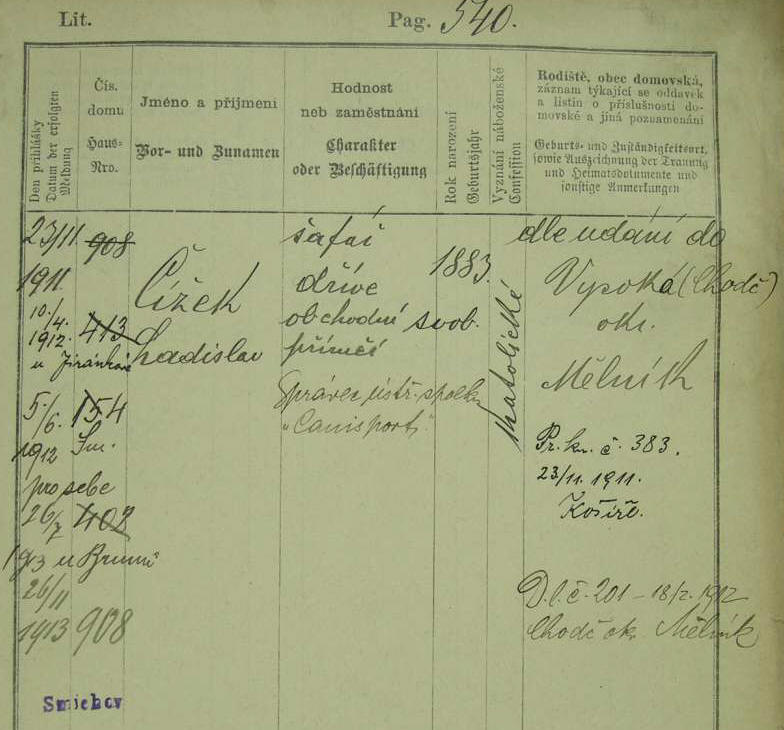 Lit. Pag. 540.
Den přihlášky
Datum der erfolgten Meldung
Čís. domu
Haus-Nro.
Jméno a příjmení
Vor- und Zunamen
Hodnost
neb zaměstnání
Charakter
oder Beschäftigung
Rok narození
Geburtsjahr
Vyznání náboženské
Confession
Rodiště, obec domovská,
záznam týkající se oddavek
a listin o příslušnosti do-
movské a jiná poznamenání
Geburts- und Zuständigkeitsort,
sowie Auszeichnung der Trauung
und Heimatsdokumente und
sonstige Anmerkungen
23/11 908
1911
10./4.
1912. 413
u Jiránkové
5./6. 154
1912 Sm.
pro sebe
26/7 402
1913 u
26/11
1913 908
Čížek
Ladislav
šafář
dříve
obchodní
příručí
Správce ústř. spolku
"Canisport"
1883.
svob.
katolické
dle udání do
Vysoká (Chodč)
okr.
Mělník
Pr. kn. č. 383.
23/11. 1911.
Košíře.
D. l. č. 201 - 18/2. 1912
Chodč okr. Mělník
Smichov